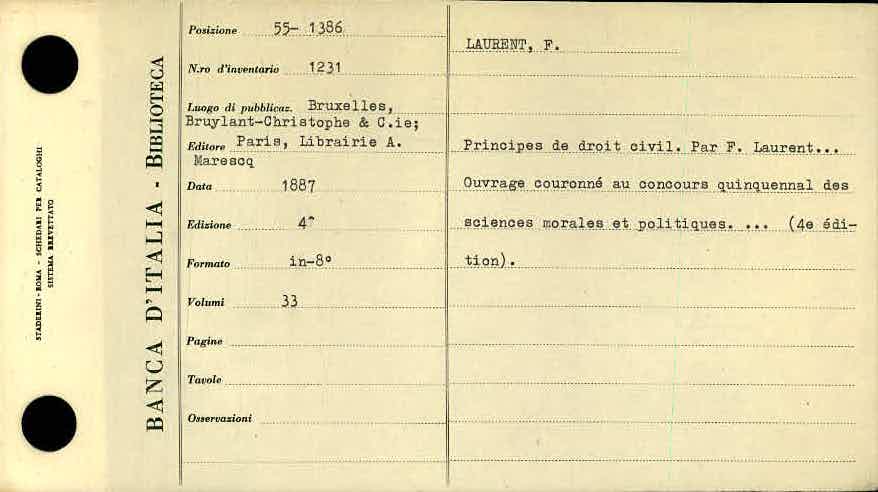 STADERINI - ROMA - SCHEDARI PER CATALOGHI
SISTEMA BREVETTATO
BANCA D'ITALIA - BIBLIOTECA
Posizione 55- 1386
N.ro d'inventario 1231
Luogo di pubblicaz. Bruxelles,
Bruylant-Christophe & C.ie;
Editore Paris, Librairie A.
Marescq
Data 1887
Edizione 4^
Formato in-8°
Volumi 33
Pagine
Tavole
Osservazioni
LAURENT, F.
Principes de droit civil. Par F. Laurent...
Ouvrage couronné au concours quinquennal des
sciences morales et politiques. ... (4e édi-
tion).